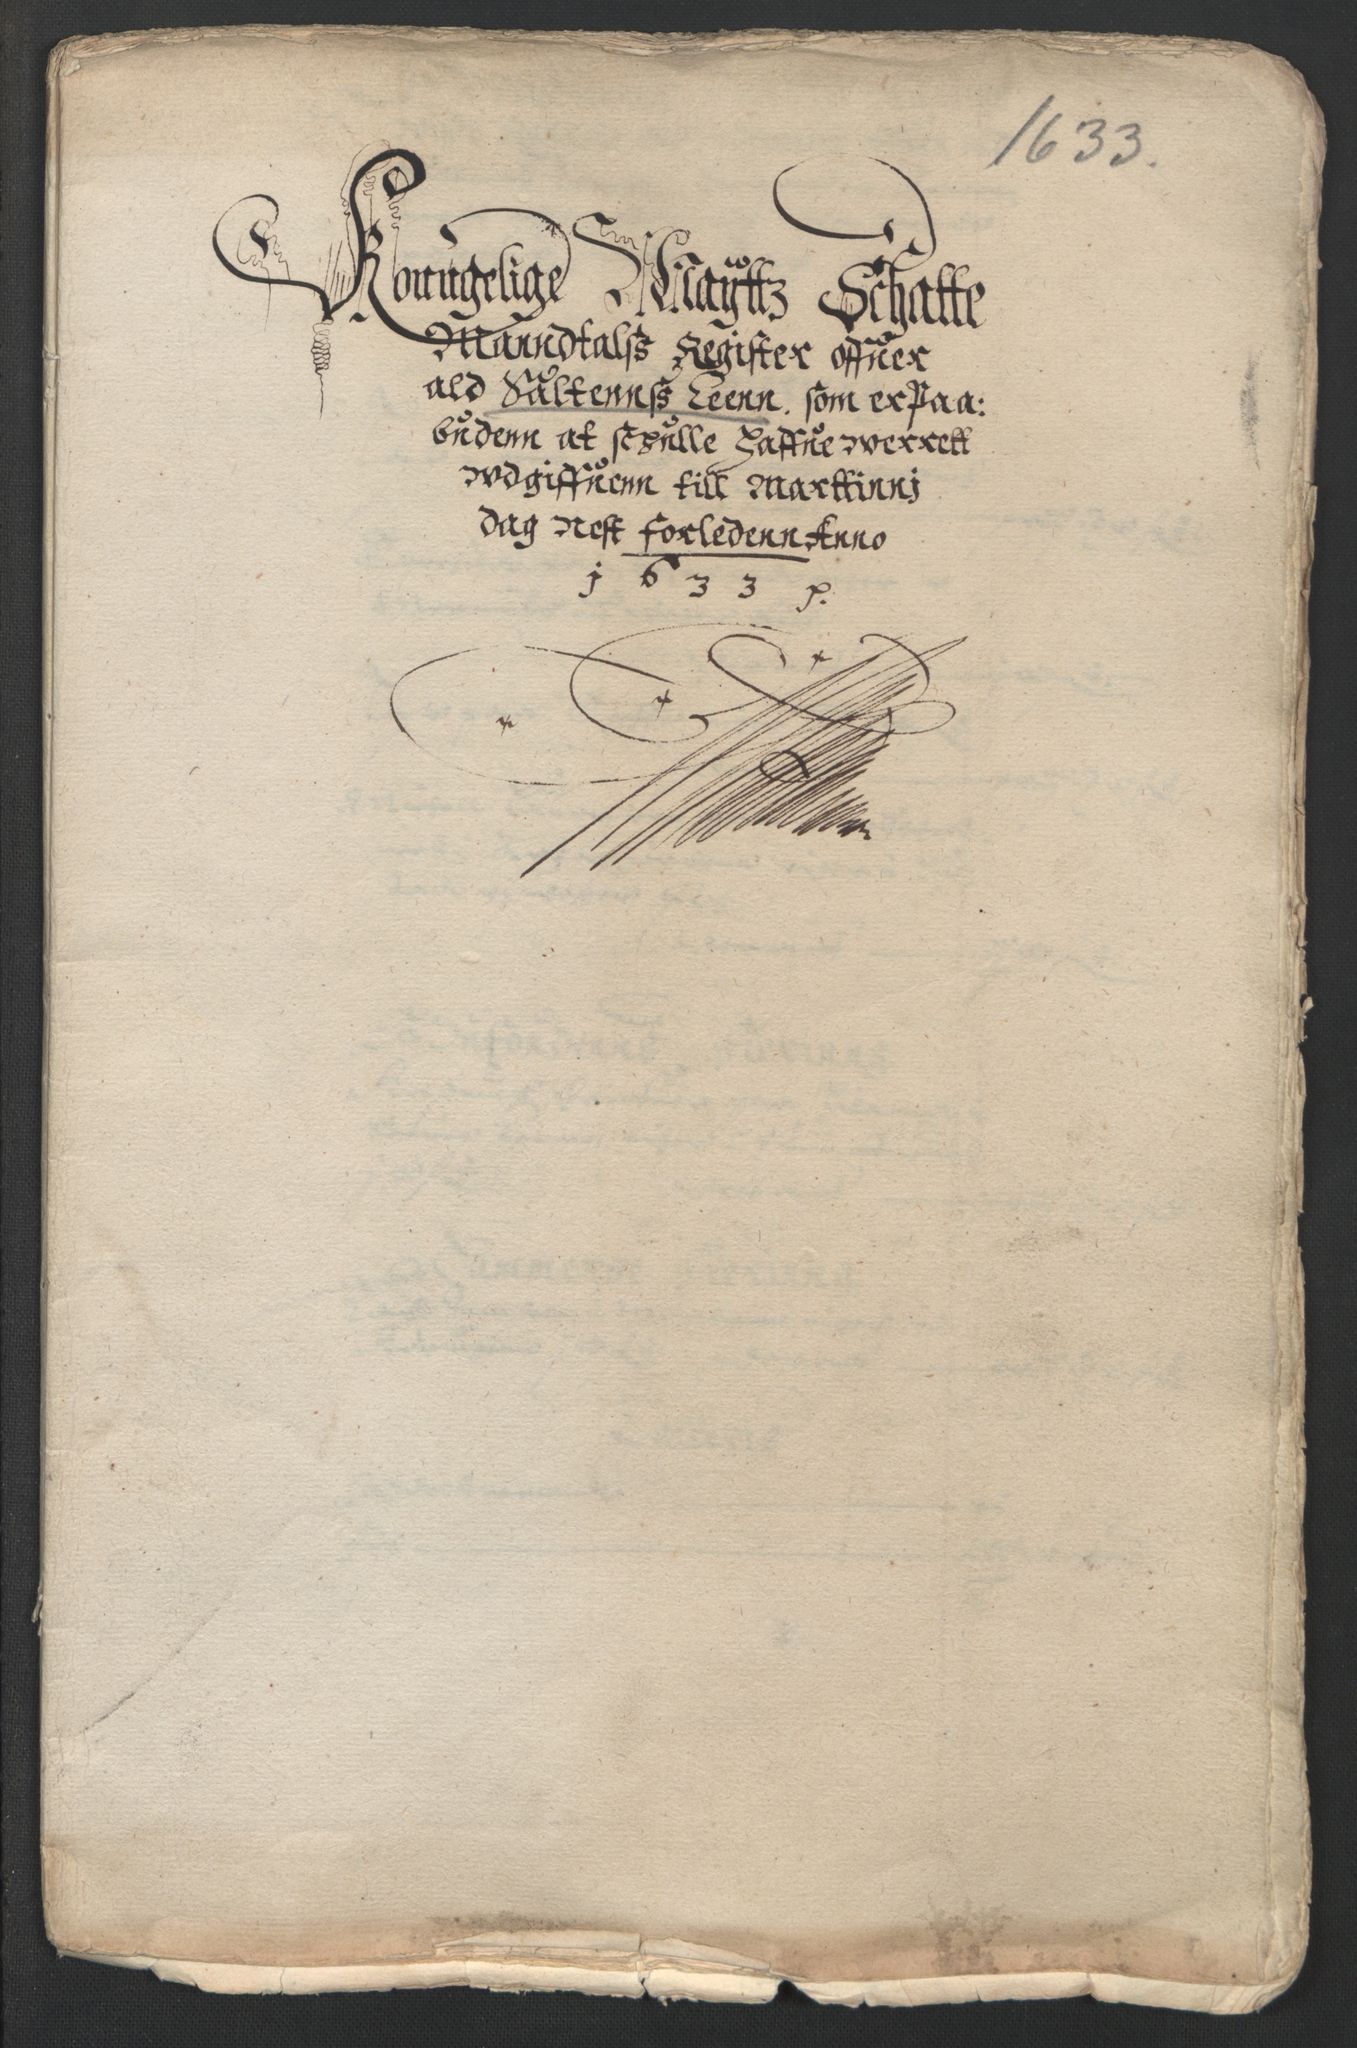 1633.
Konngelige Mayttz Schatte
Manndtalss Register offuer
ald Saltennss Leenn. som er Paa:
budenn at schulle haffue werrett
wdgiffuenn till Marttinnj
dag Nest forledenn Anno
j 6 3 3 p.